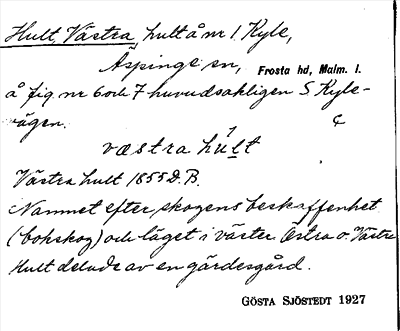 Hult, Västra, hult å nr 1 Kyle,
Äspinge sn, Frosta hd, Malm. l.
å fig. nr 6 och 7 huvudsakligen S Kyle-
vägen.
væstra hult
Västra hult 1855 D.B.
Namnet efter skogens beskaffenhet
(bokskog) och läget i väster. Östra o. Västra
Hult delade av en gärdesgård.
GÖSTA SJÖSTEDT 1927